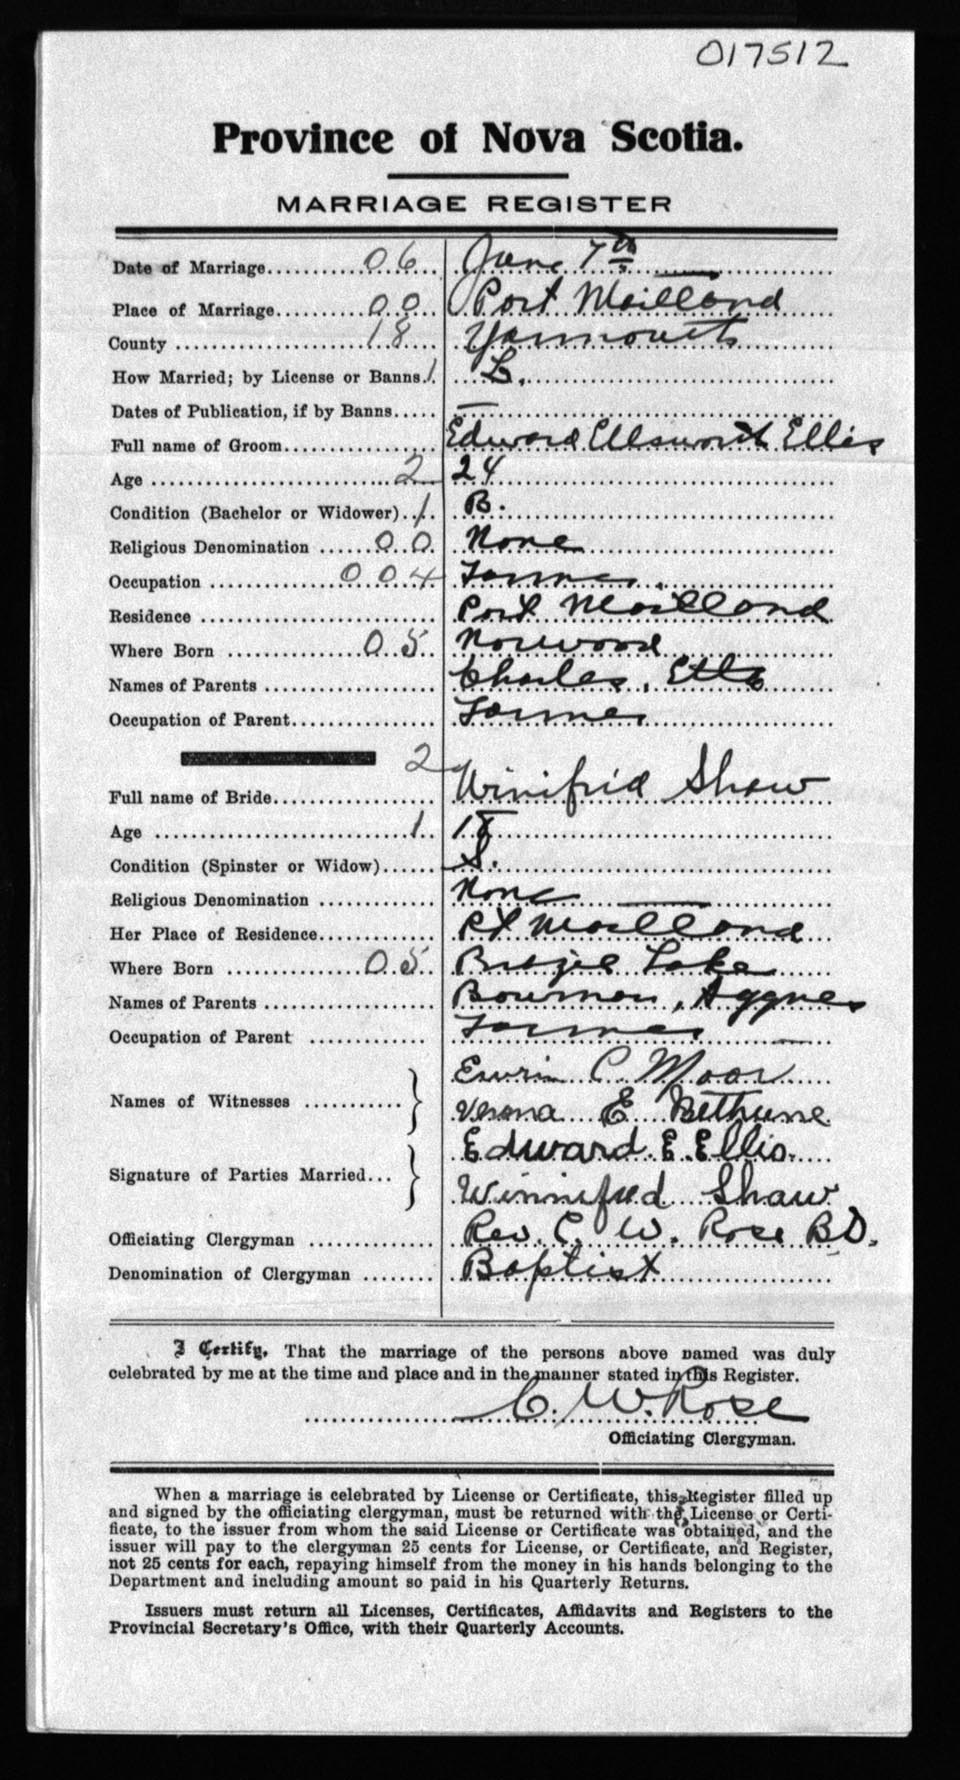 017512
Province of Nova Scotia.
MARRIAGE REGISTER
Date of Marriage 06 June 7th
Place of Marriage 00 Port Maitland
County 18 Yarmouth
How Married; by License or Banns 1 L.
Dates of Publication, if by Banns —
Full name of Groom Edward Ellsworth Ellis
Age 2 24
Condition (Bachelor or Widower) 1 B.
Religious Denomination 00 None
Occupation 004 Farmer.
Residence Port Maitland
Where Born 05 Norwood
Names of Parents Charles, Etta
Occupation of Parent Farmer
2
Full name of Bride Winifrid Shaw
Age 1 18
Condition (Spinster or Widow) S.
Religious Denomination None
Her Place of Residence Pt Maitland
Where Born 05 Lake
Names of Parents Bowman, Aggnes
Occupation of Parent Farmer
Names of Witnesses C. Moor
E Bethune
Signature of Parties Married Edward E. Ellis.
Winnifred Shaw
Officiating Clergyman Rev. C. W. Rose B.D.
Denomination of Clergyman Baptist
I Certify, That the marriage of the persons above named was duly
celebrated by me at the time and place and in the manner stated in this Register.
C. W. Rose
Officiating Clergyman.
When a marriage is celebrated by License or Certificate, this Register filled up
and signed by the officiating clergyman, must be returned with the License or Certi-
ficate, to the issuer from whom the said License or Certificate was obtained, and the
issuer will pay to the clergyman 25 cents for License, or Certificate, and Register,
not 25 cents for each, repaying himself from the money in his hands belonging to the
Department and including amount so paid in his Quarterly Returns.
Issuers must return all Licenses, Certificates, Affidavits and Registers to the
Provincial Secretary's Office, with their Quarterly Accounts.